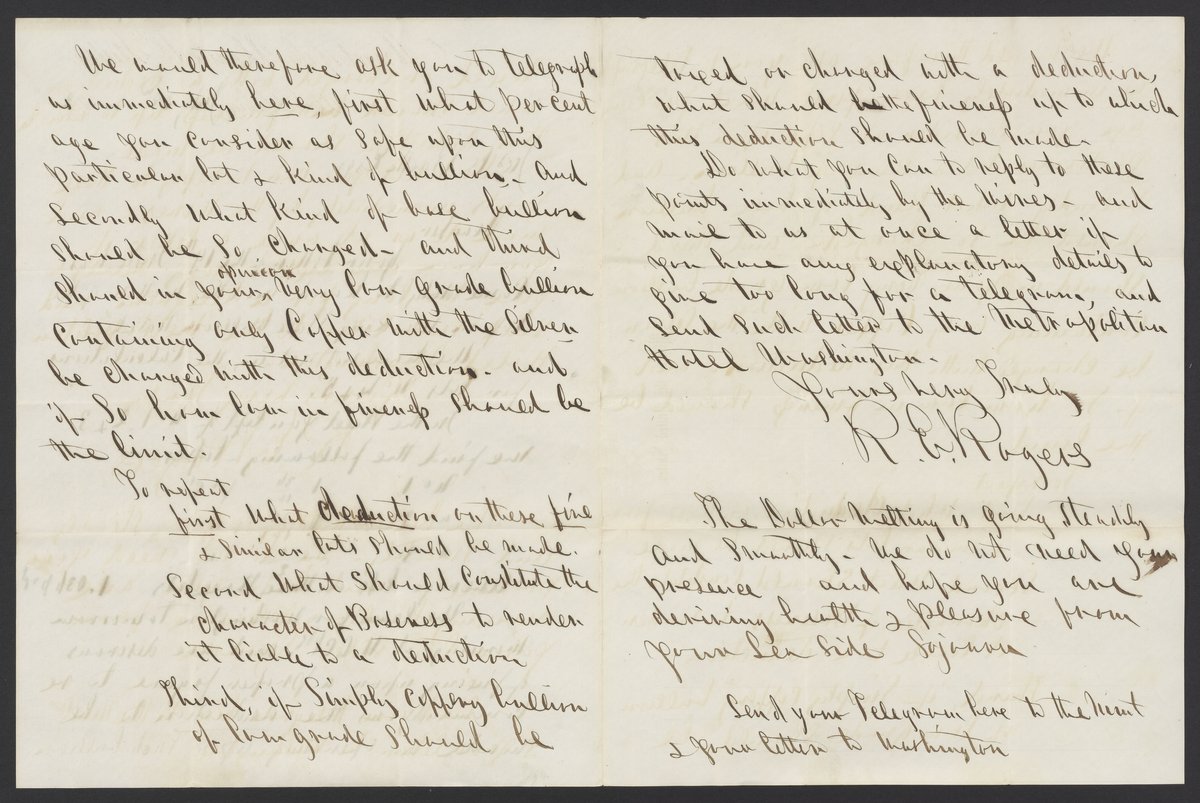 We would therefore ask you to telegraph
us immediately here, first what percent
age you consider as safe upon this
particular lot & kind of bullion - and
Secondly what kind of base bullion
should be so charged - and third
should in your opinion, very low grade bullion
containing only Copper with the Silver
be charged with this deduction - and
if so how low in fineness should be
the limit.
To repeat
first what deduction on these five
& similar lots should be made.
Second what should constitute the
character of Baseness to render
it liable to a deduction
Third, if simply coppery bullion
of low grade should be
taxed or charged with a deduction,
what should be the fineness up to which
this deduction should be made.
Do what you can to reply to these
points immediately by the wires - and
mail to us at once a letter if
you have any explanatory details to
give too long for a telegram, and
send such letter to the Metropolitan
Hotel Washington -
Yours very truly
R. E. Rogers
The Dollar Melting is going steadily
and smoothly - We do not need your
presence and hope you are
deriving health & pleasure from
your Sea Side Sojourn.
Send your Telegram here to the Mint
& your letter to Washington